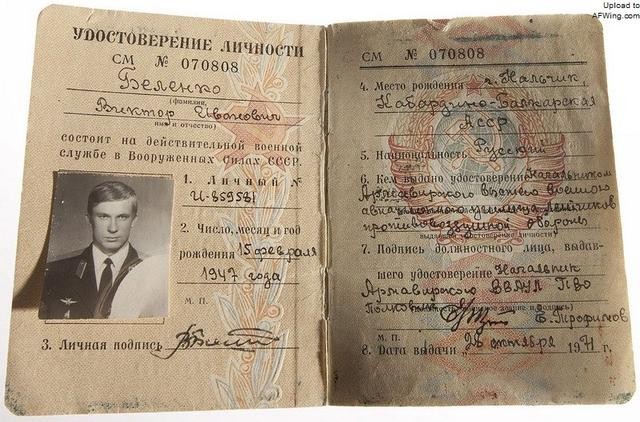 Upload to
AFWing.com
УДОСТОВЕРЕНИЕ ЛИЧНОСТИ
СМ № 070808
Беленко
(фамилия,
Виктор Иванович
имя и отчество)
состоит на действительной военной
службе в Вооруженных Силах СССР.
1. Личный №
И-859581
2. Число, месяц и год
рождения 15 февраля
1947 года
М. П.
3. Личная подпись
СМ № 070808
4. Место рождения г. Нальчик,
Кабардино-Балкарская
АССР
5. Национальность Русский
6. Кем выдано удостоверение Начальником
Армавирского высшего военного
авиационного училища лётчиков
противовоздушной обороны
7. Подпись должностного лица, выдав-
шего удостоверение Начальник
Армавирского ВВАУЛ ПВО
Полковник Е. Трофимов
М. П.
8. Дата выдачи „28 октября 1971 г.